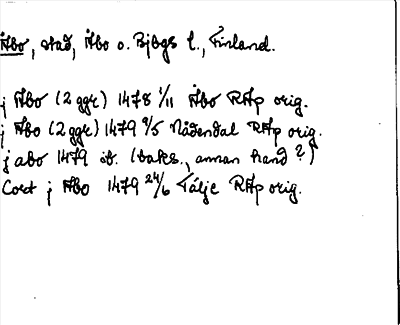 Åbo, stad, Åbo o. Bjbgs l., Finland.
j Åbo (2 ggr) 1478 1/11 Åbo RAp orig.
j Åbo (2 ggr) 1479 9/5 Nådendal RAp orig.
j abo 1479 ib. (baks., annan hand?)
Coet j Åbo 1479 24/6 Tälje RAp orig.